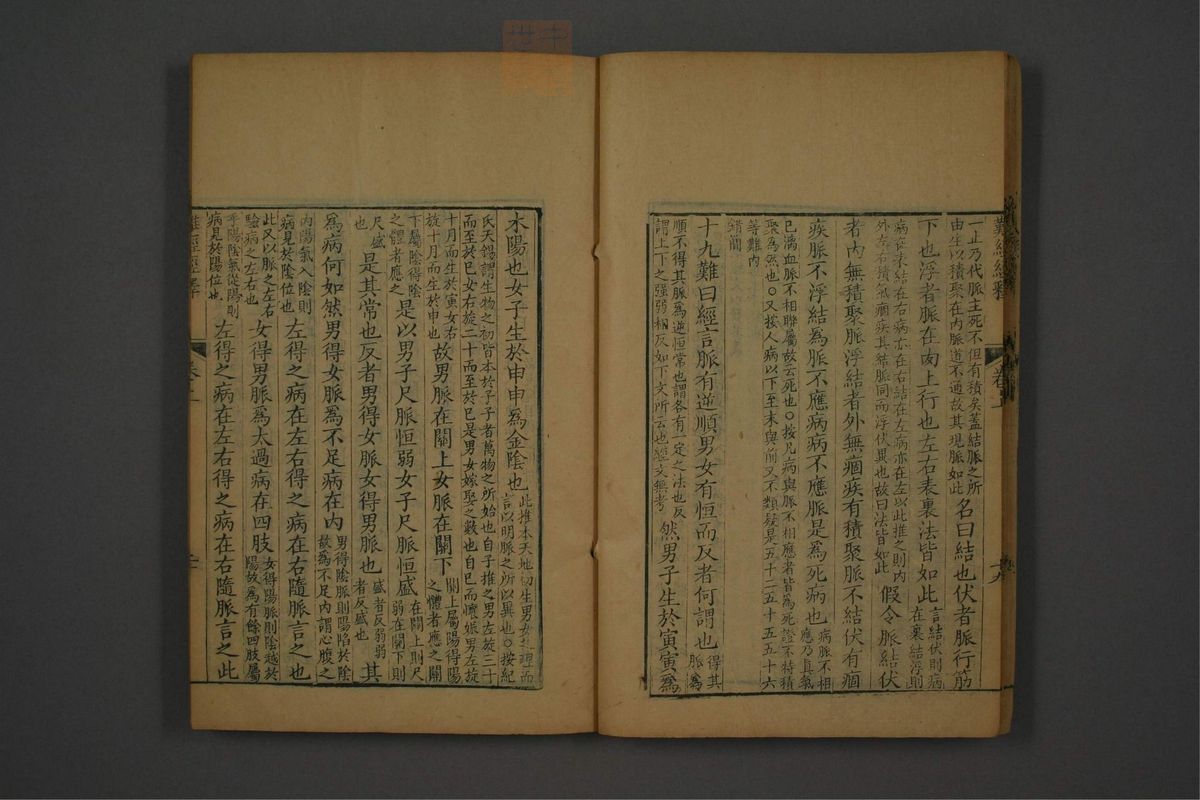 難經經釋
卷上
十九
一止乃代脈主死不但有積矣蓋結脈之所
由生以積聚在內脈道不通故其現脈如此
名曰結也伏者脈行筋
下也浮者脈在肉上行也左右表裏法皆如此
言結伏則病
在裏結浮則
病在表結在右病亦在右結在左病亦在左以此推之則內
外左右積氣痼疾其結脈同而浮伏異也故曰法皆如此
假令脈結伏
者內無積聚脈浮結者外無痼疾有積聚脈不結伏有痼
疾脈不浮結爲脈不應病病不應脈是爲死病也
病脈不相
應乃眞氣
已漓血脈不相聯屬故云死也○按凡病與脈不相應者皆爲死證不特積
聚爲然也○又按人病以下至末與前又不類疑是五十二五十五五十六
等難內
錯簡
十九難曰經言脈有逆順男女有恒而反者何謂也
得其
脈爲
順不得其脈爲逆恒常也謂各有一定之法也反
謂上下之強弱相反如下文所云也經文無考
然男子生於寅寅爲
木陽也女子生於申申爲金陰也
此推本天地初生男女之理而
言以明脈之所以異也○按紀
氏天錫謂生物之初皆本於子子者萬物之所始也自子推之男左旋三十
而至於巳女右旋二十而至於巳是男女嫁娶之數也自巳而懷娠男左旋
十月而生於寅女右
旋十月而生於申也
故男脈在關上女脈在關下
關上屬陽得陽
之體者應之關
下屬陰得陰
之體者應之
是以男子尺脈恒弱女子尺脈恒盛
在關上則尺
弱在關下則
尺盛
也
是其常也反者男得女脈女得男脈也
盛者反弱弱
者反盛也
其
爲病何如然男得女脈爲不足病在內
男得陰脈則陽陷於陰
故爲不足內謂心腹之
內陽氣入陰則
病見於陰位也
左得之病在左右得之病在右隨脈言之也
此又以脈之左右
驗病之左右也
女得男脈爲太過病在四肢
女得陽脈則陰越於
陽故爲有餘四肢屬
乎陽陰氣從陽則
病見於陽位也
左得之病在左右得之病在右隨脈言之此